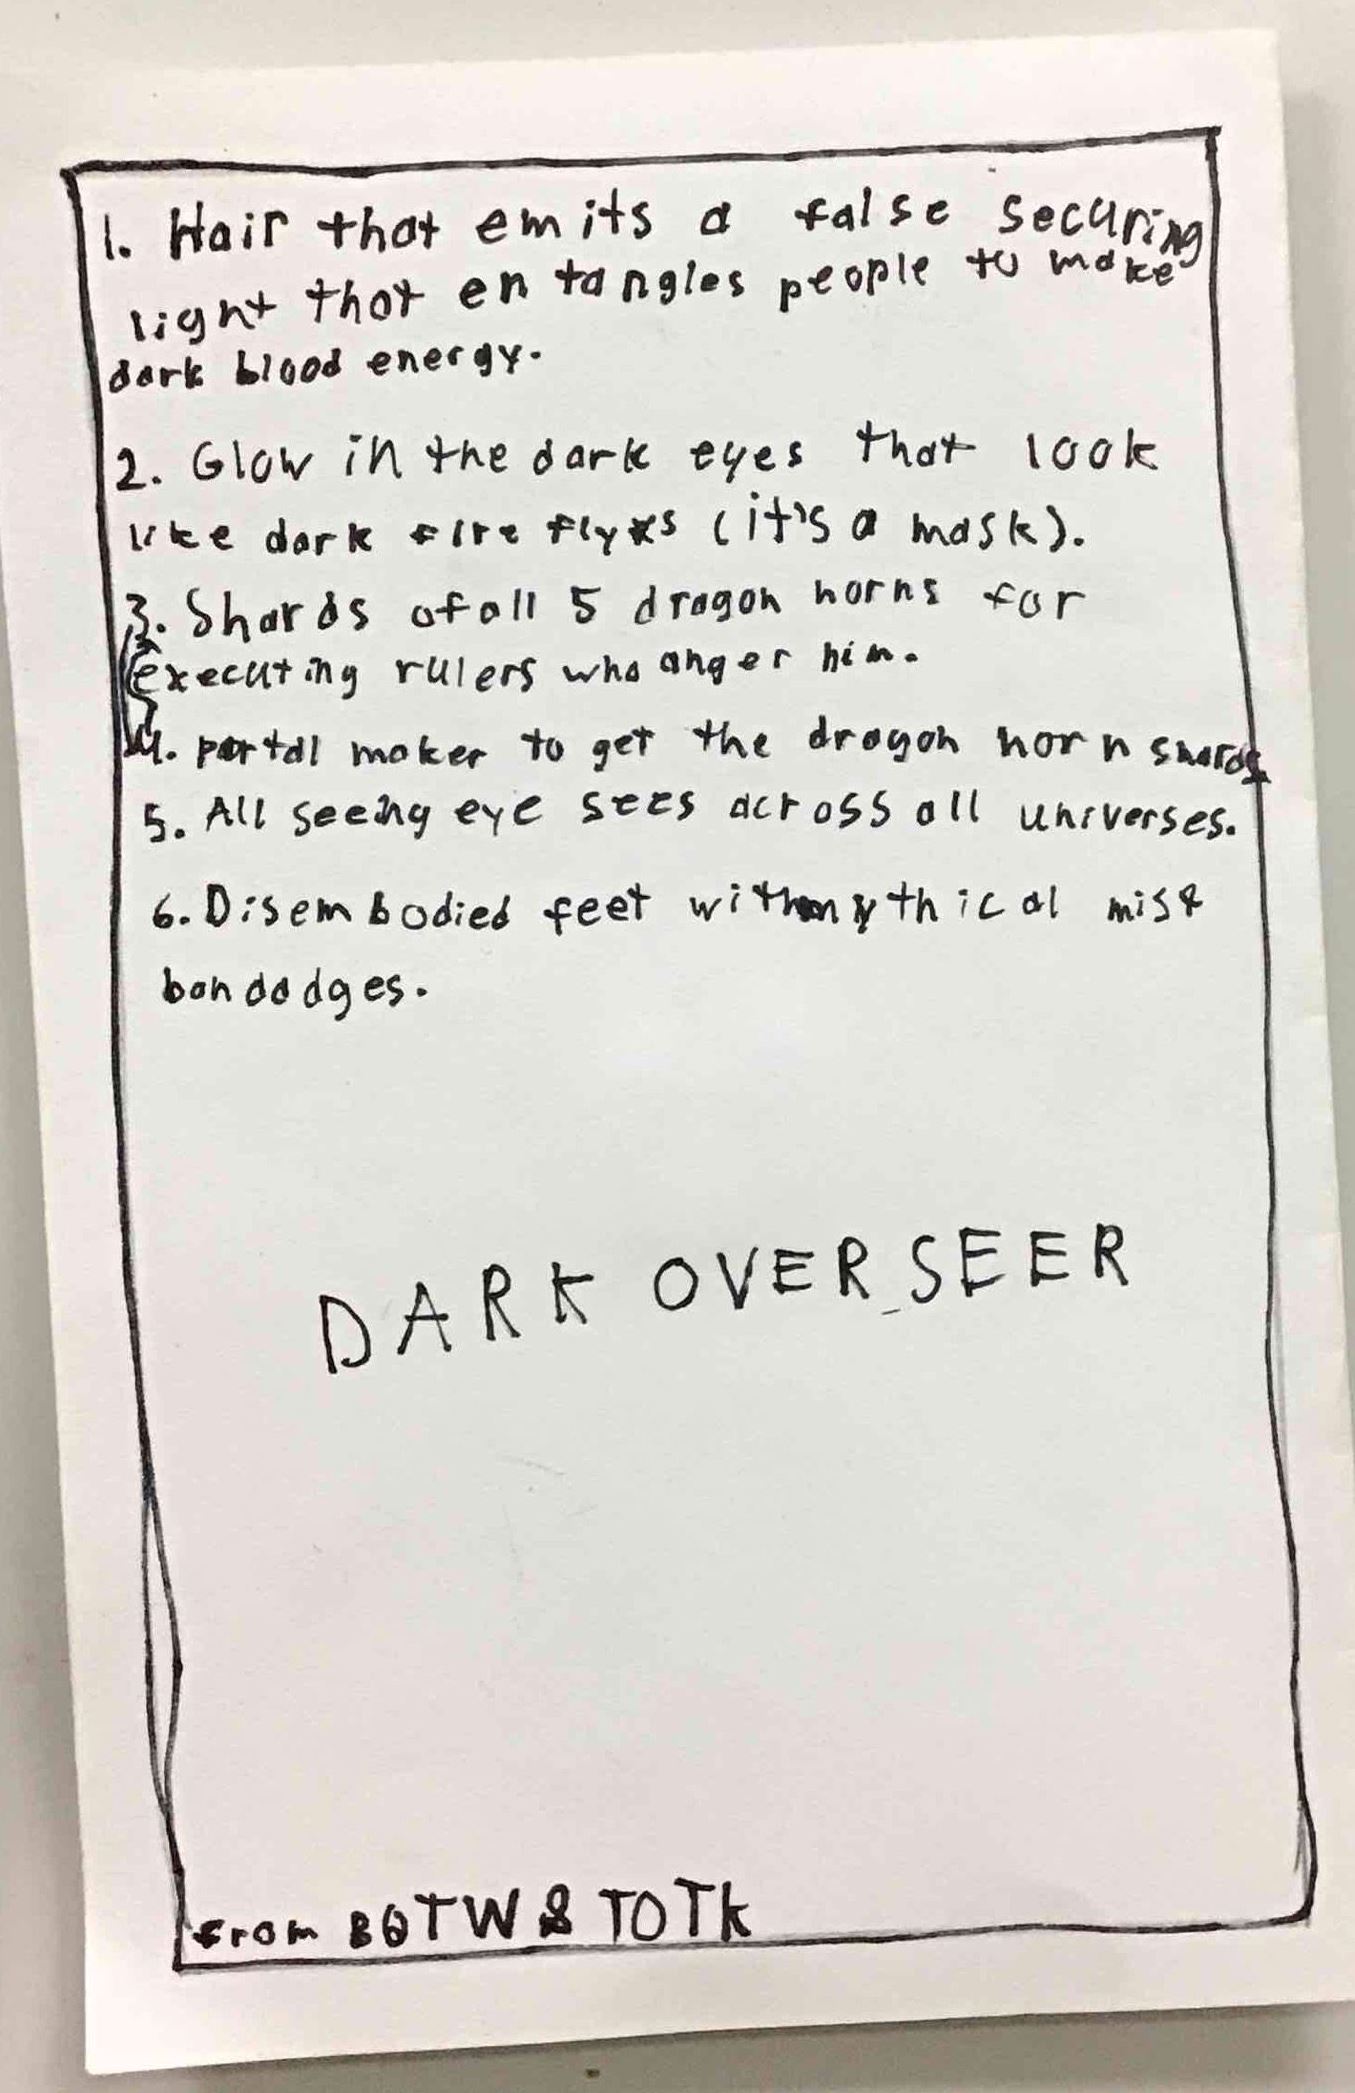 1. Hair that emits a false securing
light that entangles people to make
dark blood energy.
2. Glow in the dark eyes that look
like dark fire flyes (it's a mask).
3. Shards of all 5 dragon horns for
executing rulers who anger him.
4. portal maker to get the dragon horn shards
5. All seeing eye sees across all universes.
6. Disembodied feet with mythical mist
bandadges.
DARK OVER SEER
from BOTW & TOTK